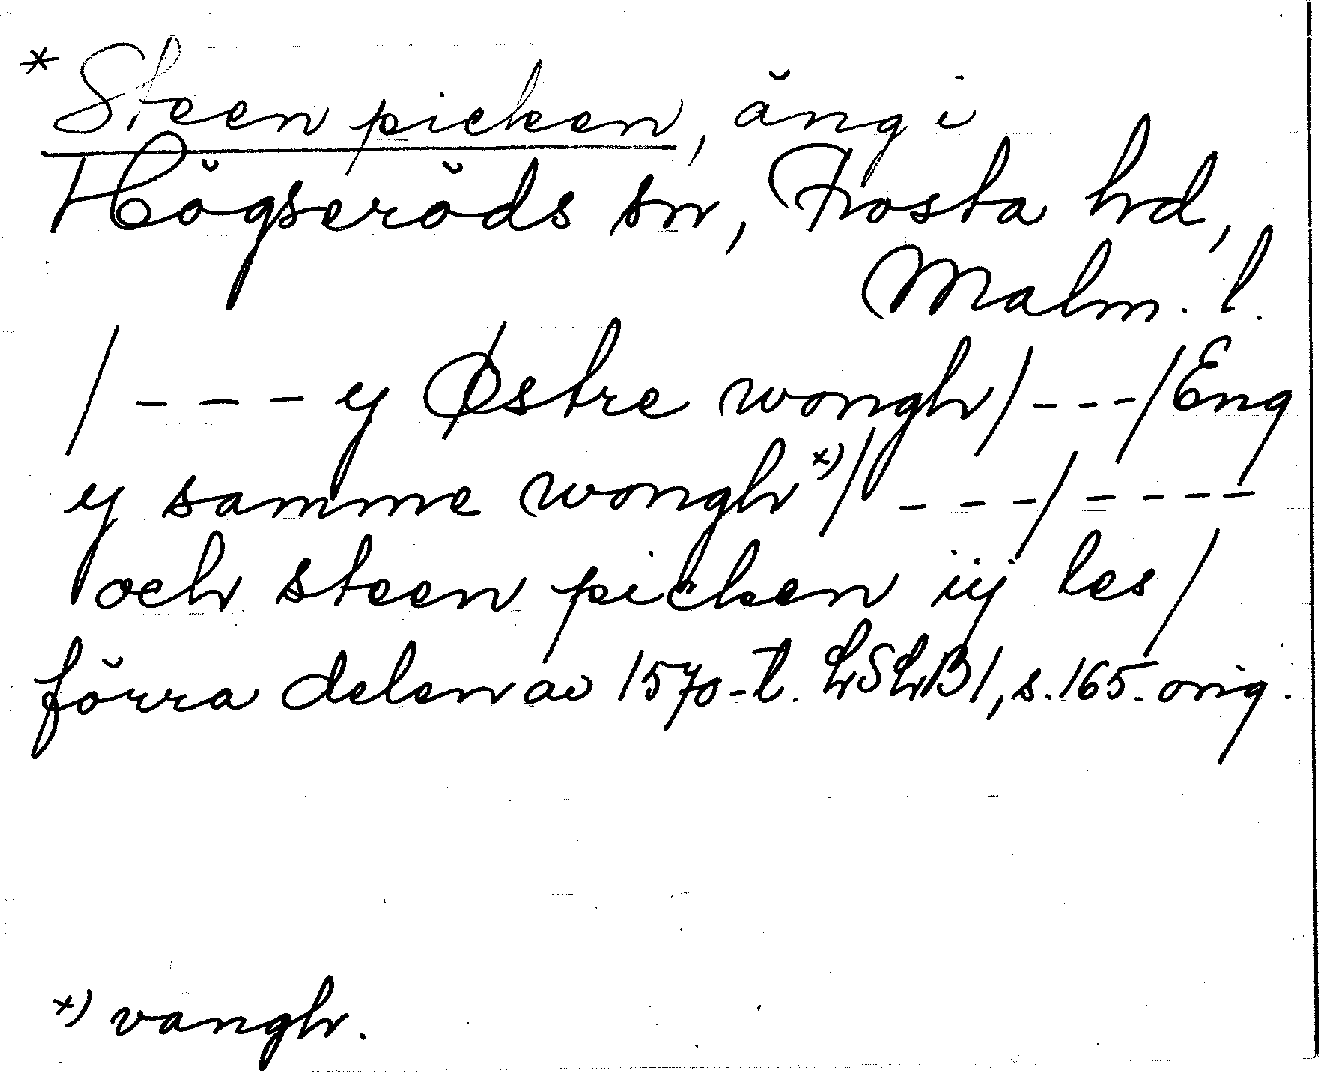 * Steen picken, äng i
Högseröds sn, Frosta hd,
Malm. l.
/ - - - y Østre wongh / - - - / Eng
y samme wongh *) / - - - / - - - -
och steen picken iij les /
förra delen av 1570-t. LSLB 1, s. 165. orig.
*) vangh.